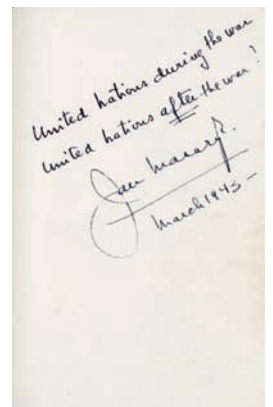 United Nations during the war
United Nations after the war!
Jan Masaryk.
March 1943 –